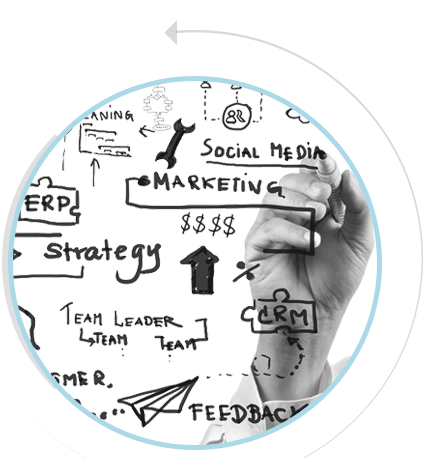 ANING
SOCIAL MEDIA
MARKETING
ERP
$$$$
Strategy
%
CRM
TEAM LEADER
TEAM
TEAM
OMER.
FEEDBACK